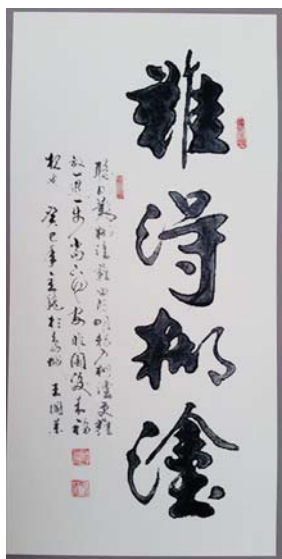 難得糊塗
聰明難糊塗難由聰明轉入糊塗更難
放一退一步當下心安非圖後來福
報也 癸巳年立秋於 王國